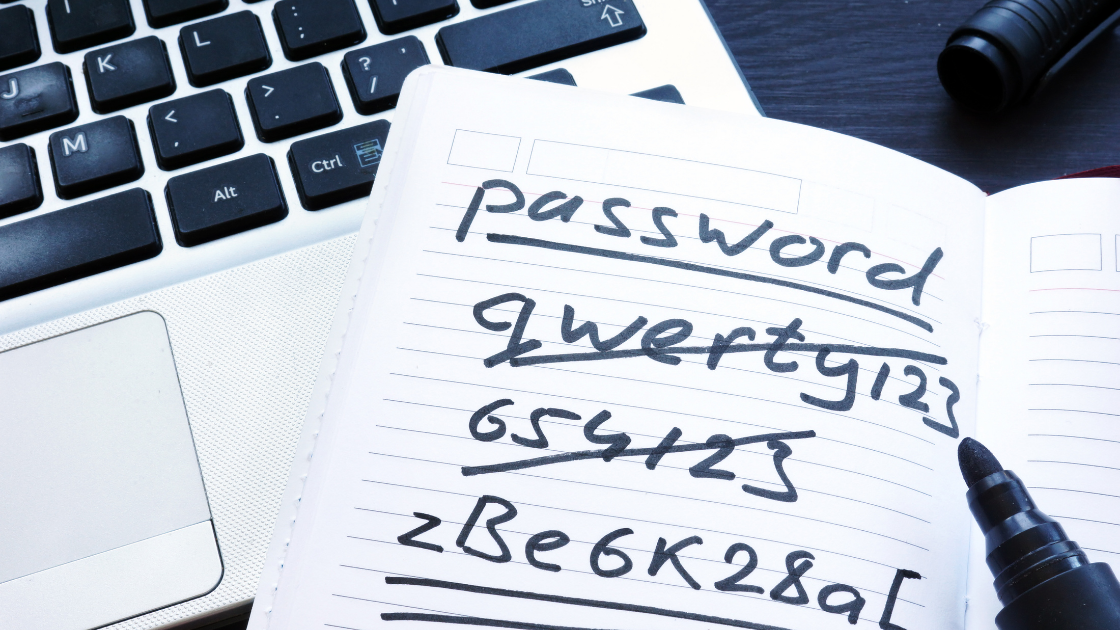 Sh
: ;
L
? /
K
>
.
J
<
,
Ctrl
M
Alt
password
qwerty123
654123
zBe6K28a[